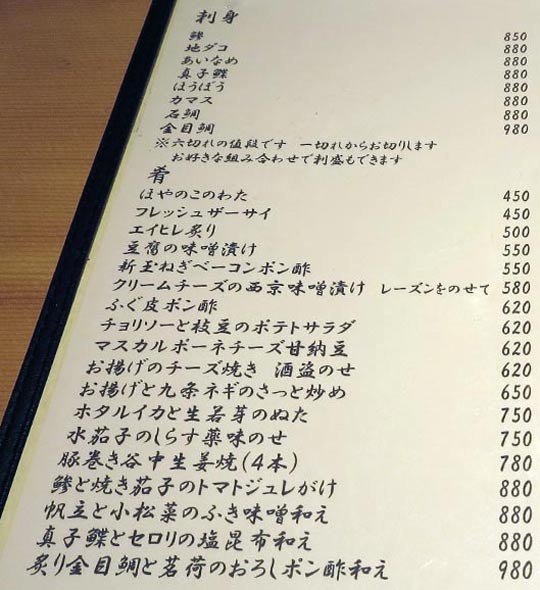 刺身
鯵 850
地ダコ 880
あいなめ 880
真子鰈 880
ほうぼう 880
カマス 880
石鯛 880
金目鯛 980
※六切れの値段です 一切れからお切りします
お好きな組み合わせで刺盛もできます
肴
ほやのこのわた 450
フレッシュザーサイ 450
エイヒレ炙り 500
豆腐の味噌漬け 550
新玉ねぎベーコンポン酢 550
クリームチーズの西京味噌漬け レーズンをのせて 580
ふぐ皮ポン酢 620
チョリソーと枝豆のポテトサラダ 620
マスカルポーネチーズ甘納豆 620
お揚げのチーズ焼き 酒盗のせ 620
お揚げと九条ネギのさっと炒め 650
ホタルイカと生若芽のぬた 750
水茄子のしらす薬味のせ 750
豚巻き谷中生姜焼(4本) 780
鯵と焼き茄子のトマトジュレがけ 880
帆立と小松菜のふき味噌和え 880
真子鰈とセロリの塩昆布和え 880
炙り金目鯛と茗荷のおろしポン酢和え 980